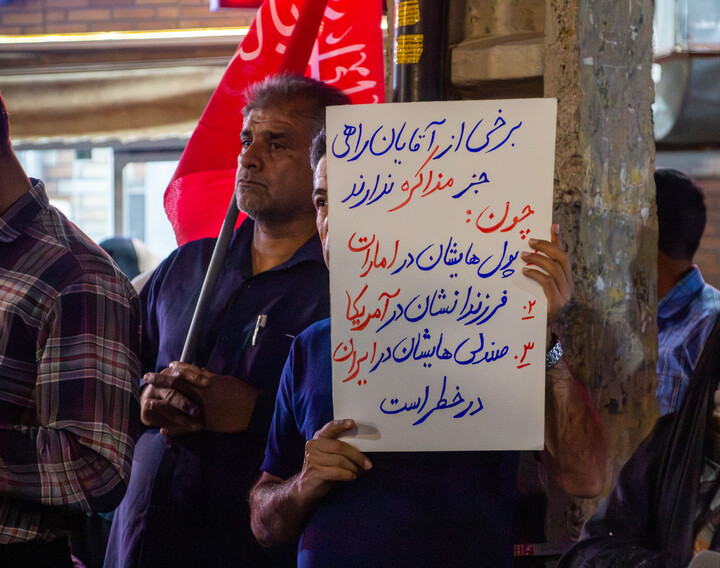 برخی از آقایان راهی
جز مذاکره ندارند
چون:
پول هایشان در امارات
۲. فرزندانشان در آمریکا
۳. صندلی هایشان در ایران
در خطر است